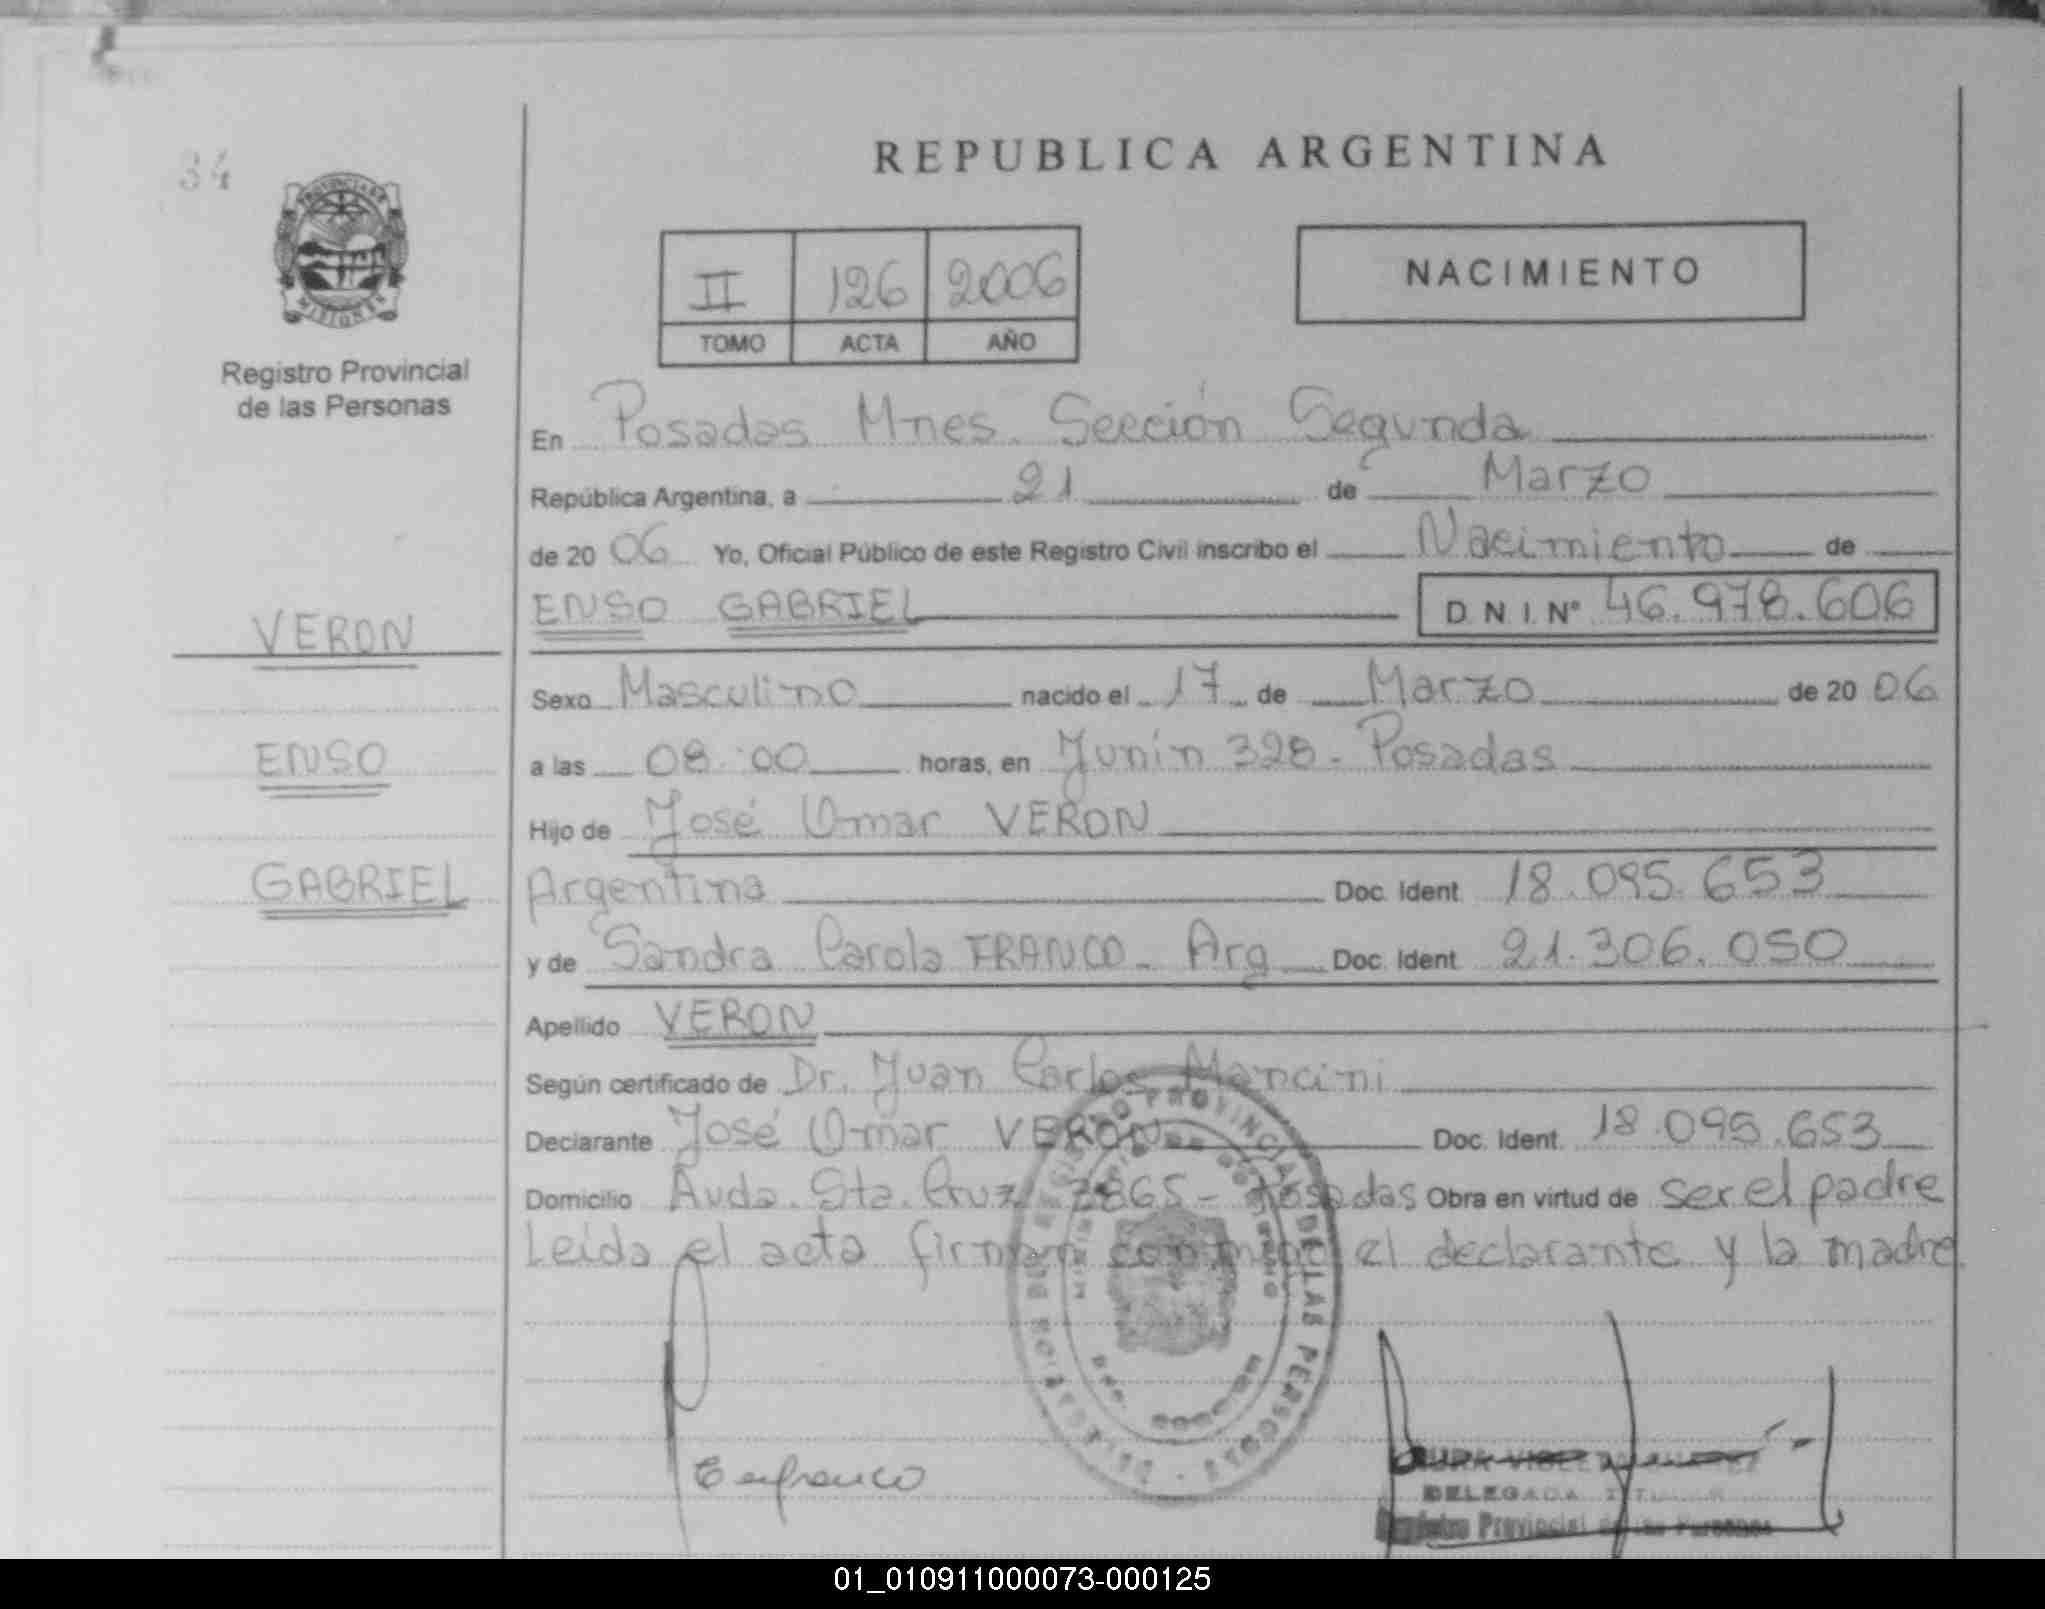 34
REPUBLICA ARGENTINA
PROVINCIA DE
MISIONES
Registro Provincial
de las Personas
II 126 2006
TOMO ACTA AÑO
NACIMIENTO
En Posadas Mnes. Sección Segunda
República Argentina, a 21 de Marzo
de 20 06 Yo, Oficial Público de este Registro Civil inscribo el Nacimiento de
ENSO GABRIEL D.N.I. Nº 46.978.606
VERON
Sexo Masculino nacido el 17 de Marzo de 20 06
ENSO
a las 08:00 horas, en Junín 328 - Posadas
Hijo de José Omar VERON
GABRIEL
Argentina Doc. Ident 18.095.653
y de Sandra Carola FRANCO - Arg Doc. Ident 21.306.050
Apellido VERON
Según certificado de Dr. Juan Carlos Mancini
Declarante José Omar VERON Doc. Ident. 18.095.653
Domicilio Avda. Sta. Cruz 7865 - Posadas Obra en virtud de ser el padre
Leida el acta firman conmigo el declarante y la madre
REGISTRO PROVINCIAL DE LAS PERSONAS
DELEGADA TITULAR
Registro Provincial de las Personas
01_010911000073-000125